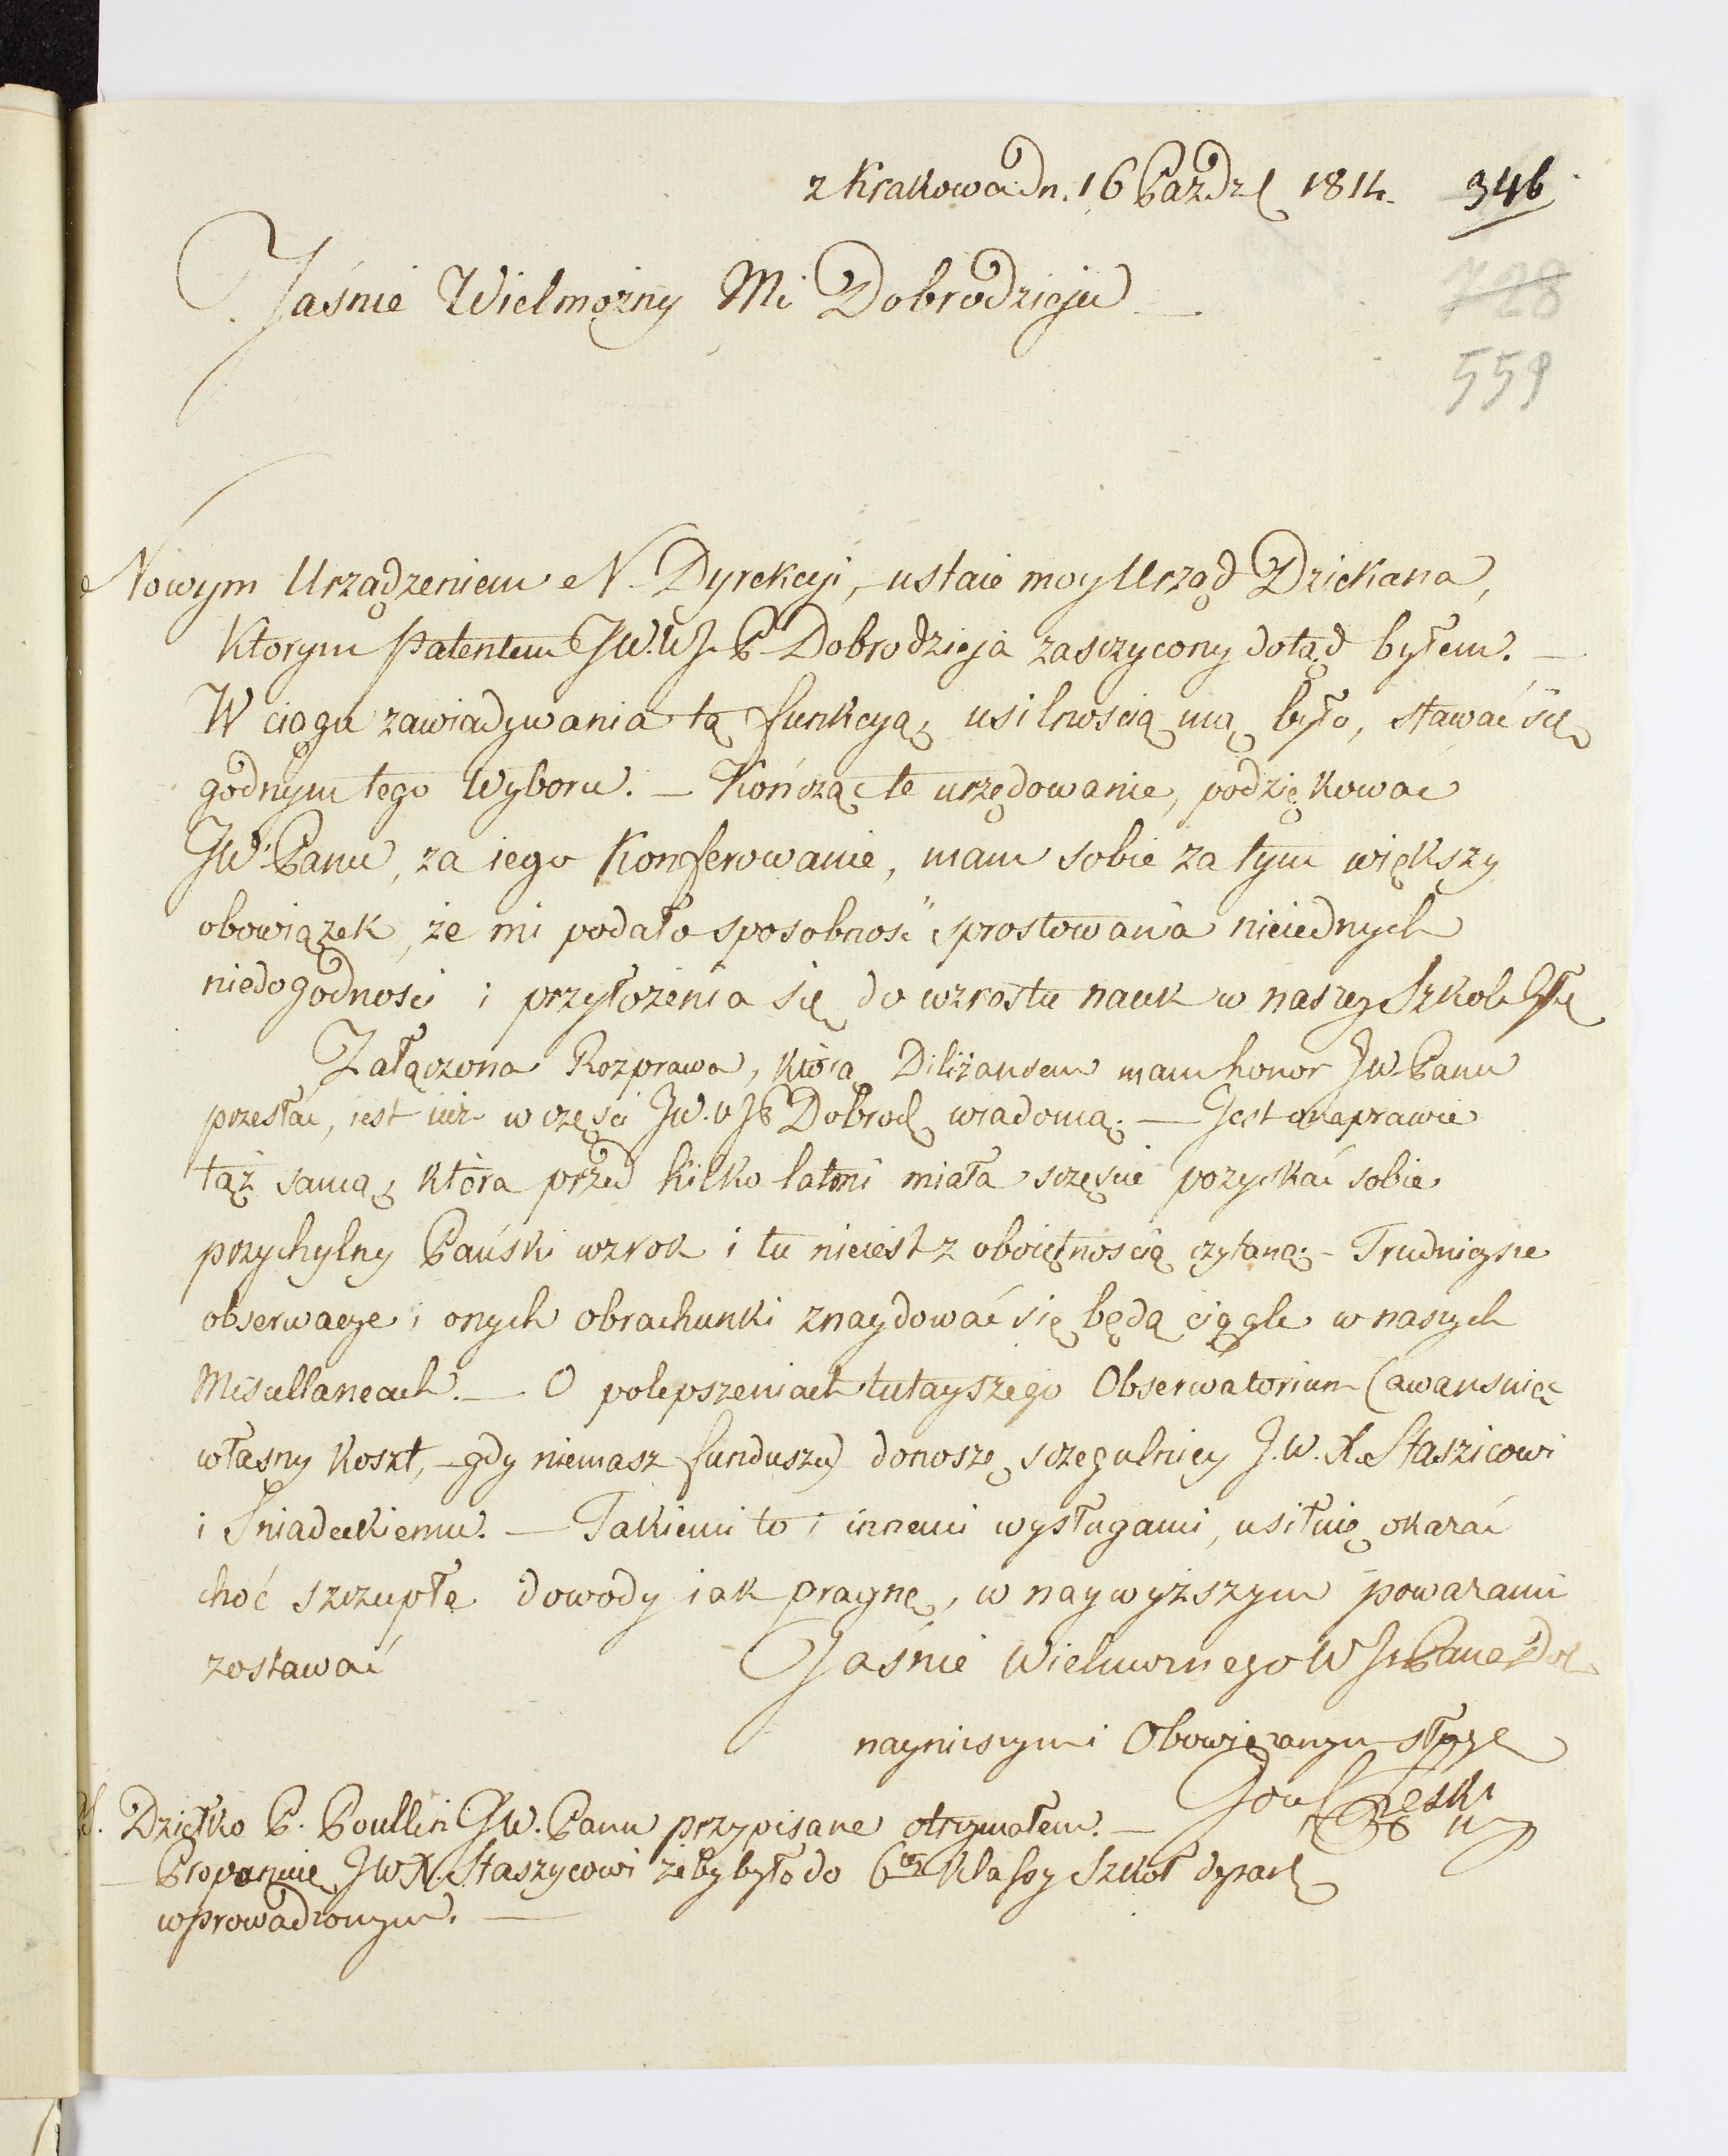 z Krakowa dn. 16 Paźdz 1814. 346
728
Jaśnie Wielmożny Mi Dobrodzieju
559
Nowym Urządzeniem N. Dyrekcyi, ustaie moy Urząd Dziekana,
Ktorym Patentem JW. WJ. P. Dobrodzieja zasczycony dotąd byłem. —
W ciągu zawiadywania tą funkcyą, usilnością mą było, stawać się
godnym tego Wyboru. — Kończąc te urzędowanie, podziękowac
JW. Panu, za iego Konferowanie, mam sobie za tym większy
obowiązek, że mi podało sposobność sprostowania nieiednych
niedogodności i przyłożenia się do wzrostu nauk w naszey Szkole Głł
Załączona Rozprawa, którą Diliżansem mam honor JW. Panu
przesłać, iest iuż w częsci JW. WJP Dobrod wiadomą. — Jest ona prawie
taż samą, która przed kilko latmi miała sczęscie pozyskać sobie
przychylny Pański wzrok i tu nieiest z oboiętnoscią czytaną. — Trudnieysze
obserwacye i onych obrachunki znaydować się będą ciągle w naszych
Miscellaneach. — O polepszeniach tutayszego Obserwatorium (awansuiąc
własny koszt, — gdy niemasz funduszu) donoszę sczegulniey J. W. X. Staszicowi
i Sniadeckiemu. — Takiemi to i innemi wysługami, usiłuię okazać
choć szczupłe dowody iak pragnę, w naywyższym poważaniu
zostawać Jaśnie Wielmożnego W Jr Pana Dob
nayniższym i Obowiązanym sługą
Józef Łęski
PS. Dziełko P. Poullin JW. Panu przypisane otrzymałem. —
— Proponuię JWX. Staszycowi żeby było do 6tey Klassy Szkół depart
wprowadzonym. —